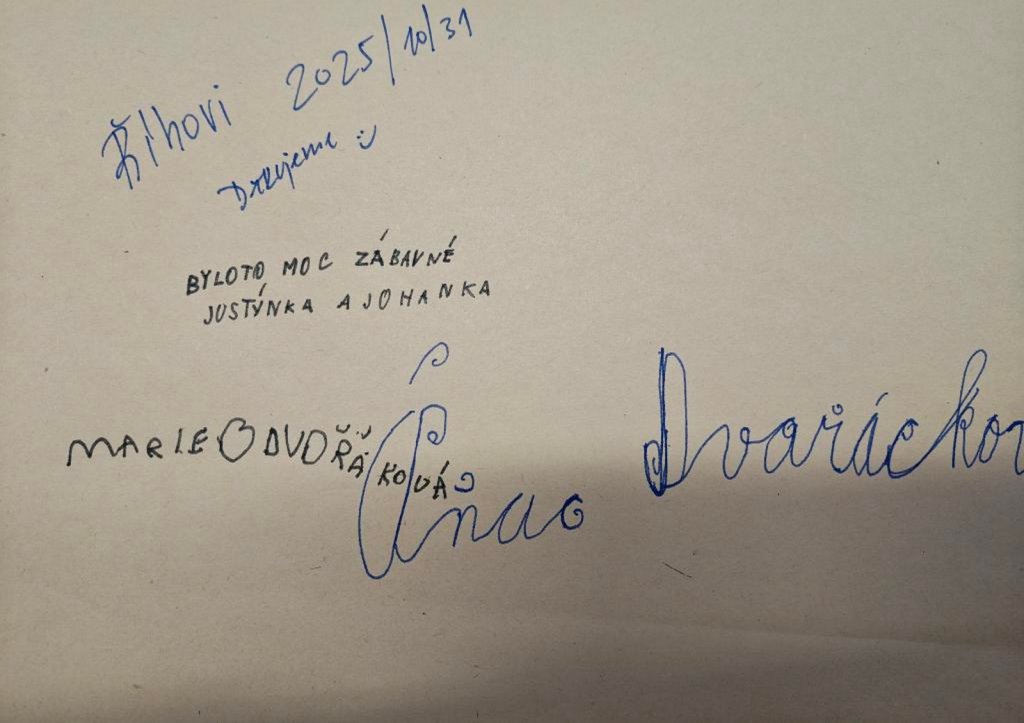 Říhovi 2025/10/31
Děkujeme :)
BYLOTO MOC ZÁBAVNÉ
JUSTÝNKA A JOHANKA
MARIE DVOŘÁKOVÁ